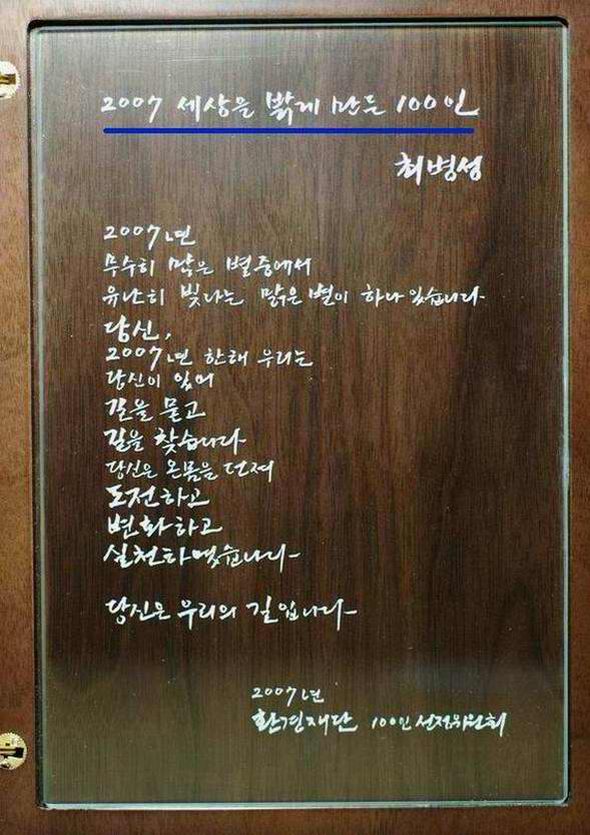 2007 세상을 밝게 만든 100인
최병성
2007년
무수히 많은 별중에서
유난히 빛나는 맑은 별이 하나 있습니다
당신,
2007년 한해 우리는
당신이 있어
길을 묻고
길을 찾습니다
당신은 온몸을 던져
도전하고
변화하고
실천하였습니다
당신은 우리의 길입니다
2007년
환경재단 100인 선정위원회